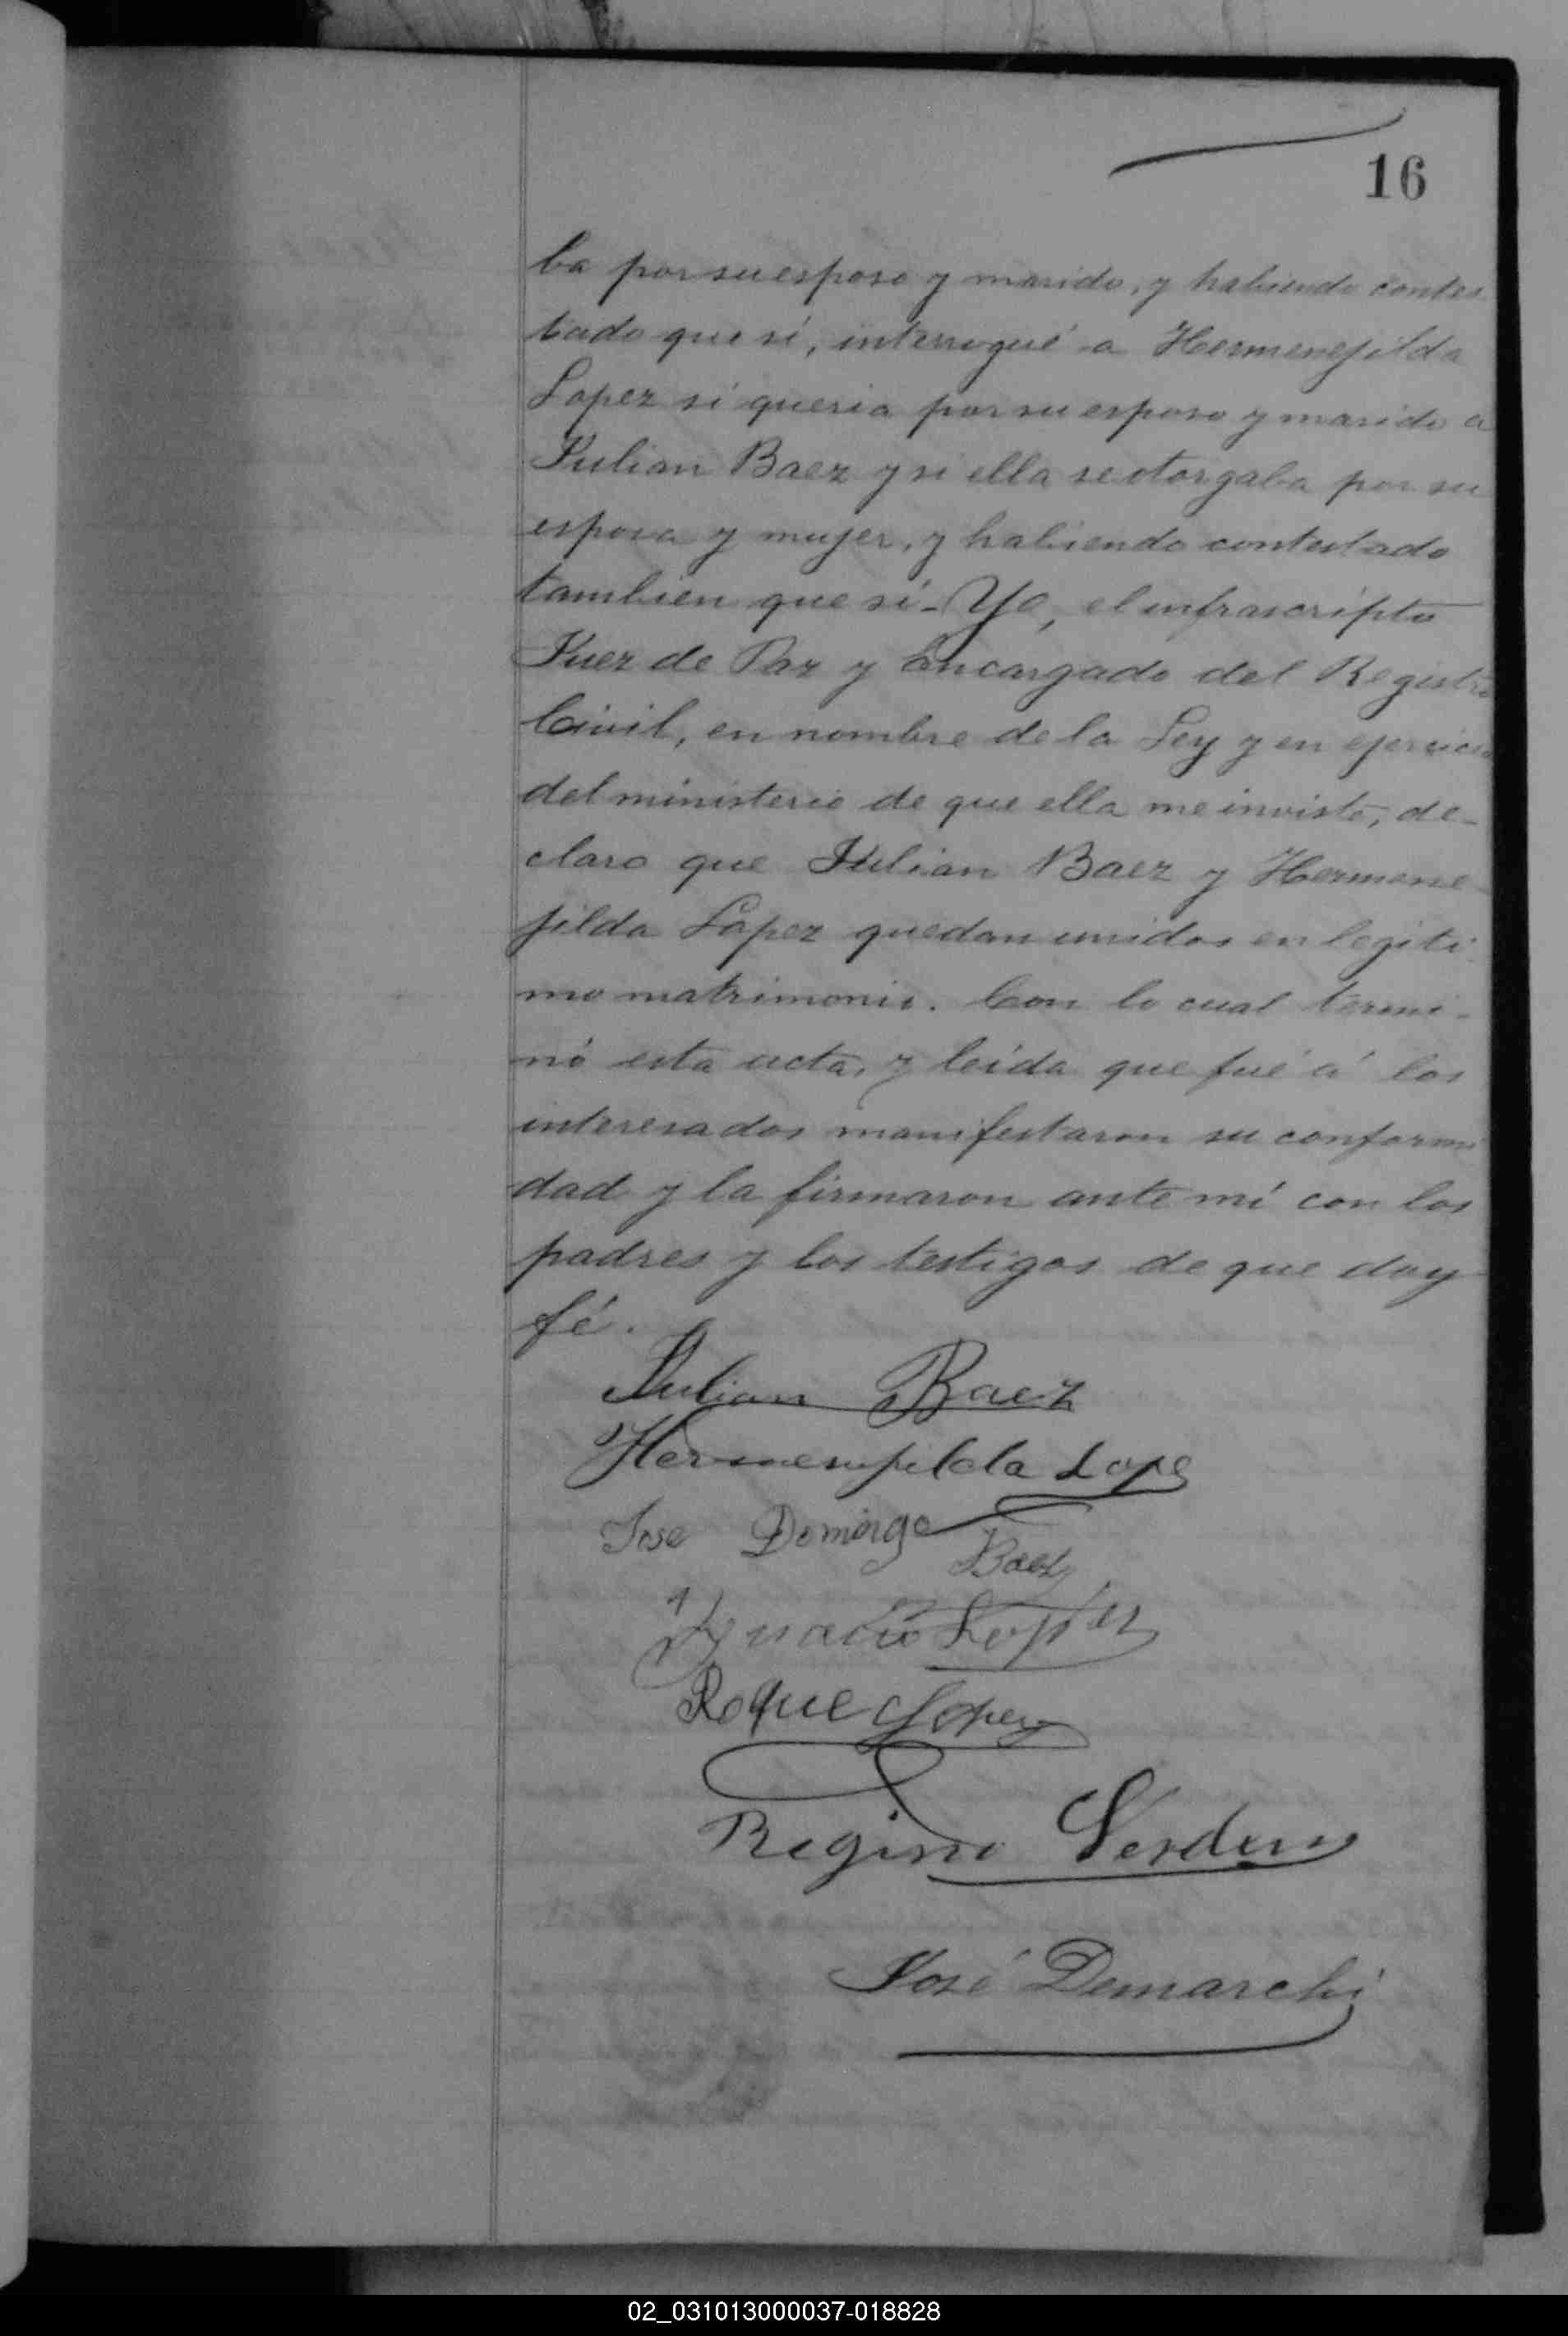 16
ba por su esposo y marido, y habiendo contes
tado que sí, interrogué a Hermenejilda
Lopez si queria por su esposo y marido a
Julian Baez y si ella se otorgaba por su
esposa y mujer, y habiendo contestado
tambien que sí - Yo, el infrascripto
Juez de Paz y Encargado del Registro
Civil, en nombre de la Ley y en ejercicio
del ministerio de que ella me inviste, de-
claro que Julian Baez y Hermene-
jilda Lopez quedan unidos en legiti-
mo matrimonio. Con lo cual termi-
nó esta acta, y leída que fué á los
interesados manifestaron su conformi
dad y la firmaron ante mí con los
padres y los testigos de que doy
fé.
Julian Baez
Hermenejilda Lope
Jose Domingo
Baez
Ygnacio Lopez
Roque Lopez
Regino
José Demarchi
02_031013000037-018828